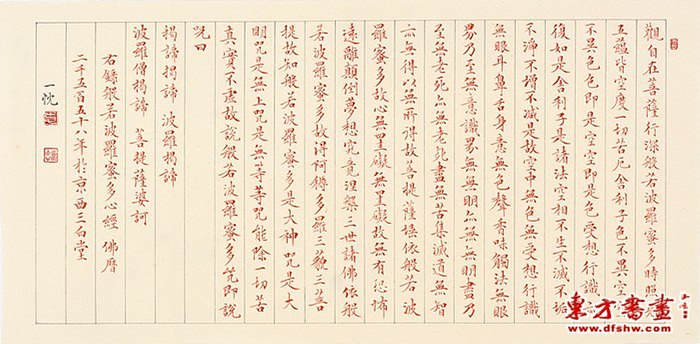 觀自在菩薩行深般若波羅蜜多時照見
五蘊皆空度一切苦厄舍利子色不異空
不異色色即是空空即是色受想行識
復如是舍利子是諸法空相不生不滅不垢
不淨不增不減是故空中無色無受想行識
無眼耳鼻舌身意無色聲香味觸法無眼
界乃至無意識界無無明亦無無明盡乃
至無老死亦無老死盡無苦集滅道無智
亦無得以無所得故菩提薩埵依般若波
羅蜜多故心無罣礙無罣礙故無有恐怖
遠離顛倒夢想究竟涅槃三世諸佛依般
若波羅蜜多故得阿耨多羅三藐三菩
提故知般若波羅蜜多是大神咒是大
明咒是無上咒是無等等咒能除一切苦
真實不虛故說般若波羅蜜多咒即說
咒曰
揭諦揭諦 波羅揭諦
波羅僧揭諦 菩提薩婆訶
右錄般若波羅蜜多心經 佛曆
二千五百五十八年於京西三白堂
一忱
東方書畫
www.dfshw.com